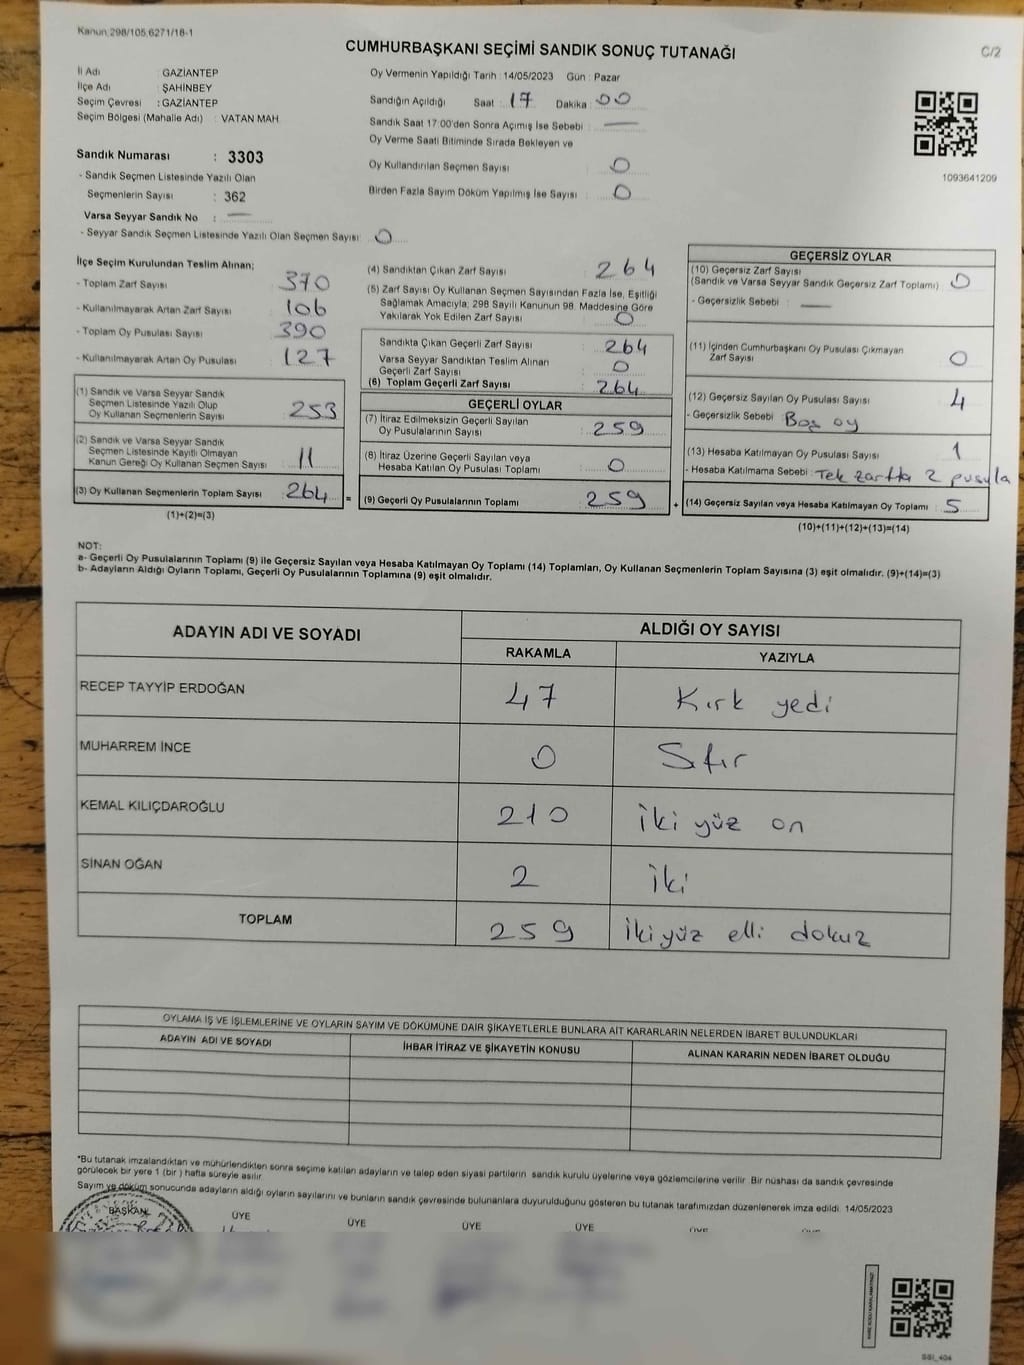 Kanun 298/105,6271/16-1
CUMHURBAŞKANI SEÇİMİ SANDIK SONUÇ TUTANAĞI
C/2
İl Adı : GAZİANTEP
İlçe Adı : ŞAHİNBEY
Seçim Çevresi : GAZİANTEP
Seçim Bölgesi (Mahalle Adı) : VATAN MAH.
Oy Vermenin Yapıldığı Tarih : 14/05/2023 Gün : Pazar
Sandığın Açıldığı Saat : 17 Dakika : 00
Sandık Saat 17:00'den Sonra Açılmış İse Sebebi : —
Oy Verme Saati Bitiminde Sırada Bekleyen ve
Oy Kullandırılan Seçmen Sayısı : 0
Birden Fazla Sayım Döküm Yapılmış İse Sayısı : 0
1093641209
Sandık Numarası : 3303
- Sandık Seçmen Listesinde Yazılı Olan
Seçmenlerin Sayısı : 362
Varsa Seyyar Sandık No : —
- Seyyar Sandık Seçmen Listesinde Yazılı Olan Seçmen Sayısı: 0
İlçe Seçim Kurulundan Teslim Alınan;
- Toplam Zarf Sayısı : 370
- Kullanılmayarak Artan Zarf Sayısı : 106
- Toplam Oy Pusulası Sayısı : 390
- Kullanılmayarak Artan Oy Pusulası : 127
(1) Sandık ve Varsa Seyyar Sandık
Seçmen Listesinde Yazılı Olup
Oy Kullanan Seçmenlerin Sayısı : 253
(2) Sandık ve Varsa Seyyar Sandık
Seçmen Listesinde Kayıtlı Olmayan
Kanun Gereği Oy Kullanan Seçmen Sayısı : 11
(3) Oy Kullanan Seçmenlerin Toplam Sayısı : 264 =
(1)+(2)=(3)
(4) Sandıktan Çıkan Zarf Sayısı : 264
(5) Zarf Sayısı Oy Kullanan Seçmen Sayısından Fazla İse, Eşitliği
Sağlamak Amacıyla, 298 Sayılı Kanunun 98. Maddesine Göre
Yakılarak Yok Edilen Zarf Sayısı : 0
Sandıkta Çıkan Geçerli Zarf Sayısı : 264
Varsa Seyyar Sandıktan Teslim Alınan
Geçerli Zarf Sayısı : 0
(6) Toplam Geçerli Zarf Sayısı : 264
GEÇERLİ OYLAR
(7) İtiraz Edilmeksizin Geçerli Sayılan
Oy Pusulalarının Sayısı : 259
(8) İtiraz Üzerine Geçerli Sayılan veya
Hesaba Katılan Oy Pusulası Toplamı : 0
(9) Geçerli Oy Pusulalarının Toplamı : 259 +
GEÇERSİZ OYLAR
(10) Geçersiz Zarf Sayısı
(Sandık ve Varsa Seyyar Sandık Geçersiz Zarf Toplamı) : 0
- Geçersizlik Sebebi : —
(11) İçinden Cumhurbaşkanı Oy Pusulası Çıkmayan
Zarf Sayısı : 0
(12) Geçersiz Sayılan Oy Pusulası Sayısı : 4
- Geçersizlik Sebebi : Boş oy
(13) Hesaba Katılmayan Oy Pusulası Sayısı : 1
- Hesaba Katılmama Sebebi : Tek zarfta 2 pusula
(14) Geçersiz Sayılan veya Hesaba Katılmayan Oy Toplamı : 5
(10)+(11)+(12)+(13)=(14)
NOT:
a- Geçerli Oy Pusulalarının Toplamı (9) ile Geçersiz Sayılan veya Hesaba Katılmayan Oy Toplamı (14) Toplamları, Oy Kullanan Seçmenlerin Toplam Sayısına (3) eşit olmalıdır. (9)+(14)=(3)
b- Adayların Aldığı Oyların Toplamı, Geçerli Oy Pusulalarının Toplamına (9) eşit olmalıdır.
ADAYIN ADI VE SOYADI
ALDIĞI OY SAYISI
RAKAMLA YAZIYLA
RECEP TAYYİP ERDOĞAN 47 Kırk yedi
MUHARREM İNCE 0 Sıfır
KEMAL KILIÇDAROĞLU 210 İki yüz on
SİNAN OĞAN 2 İki
TOPLAM 259 İkiyüz elli dokuz
OYLAMA İŞ VE İŞLEMLERİNE VE OYLARIN SAYIM VE DÖKÜMÜNE DAİR ŞİKAYETLERLE BUNLARA AİT KARARLARIN NELERDEN İBARET BULUNDUKLARI
ADAYIN ADI VE SOYADI İHBAR İTİRAZ VE ŞİKAYETİN KONUSU ALINAN KARARIN NEDEN İBARET OLDUĞU
*Bu tutanak imzalandıktan ve mühürlendikten sonra seçime katılan adayların ve talep eden siyasi partilerin sandık kurulu üyelerine veya gözlemcilerine verilir. Bir nüshası da sandık çevresinde
görülecek bir yere 1 (bir ) hafta süreyle asılır.
Sayım ve döküm sonucunda adayların aldığı oyların sayılarını ve bunların sandık çevresinde bulunanlara duyurulduğunu gösteren bu tutanak tarafımızdan düzenlenerek imza edildi. 14/05/2023
BAŞKAN ÜYE ÜYE ÜYE ÜYE ÜYE